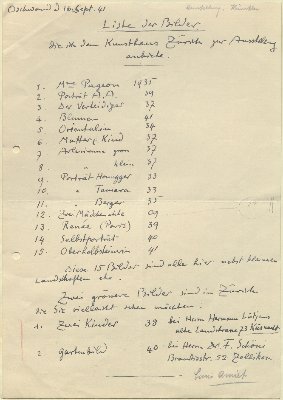 Oschwand 16. Sept. 41
Ausstellung, Künstler
Liste der Bilder.
die ich dem Kunsthaus Zürich zur Ausstellung
anbiete.
1. Mme Pugeon 1935
2. Porträt A.M. 39
3. Der Verteidiger 37
4. Blumen 41
5. Orientalin 34
6. Mutter u. Kind 37
7. gross 37
8. " klein 37
9. Porträt Honegger 33
10. " Tamara 33
11. " Berger 35
12. Zwei Mädchenakte 09
13. Renée (Paris) 39
14. Selbstporträt 40
15. 41
Diese 15 Bilder sind alle hier nebst kleinen
Landschaften etc.
Zwei grössere Bilder sind in Zürich
die Sie vielleicht sehen möchten:
1. Zwei Kinder 38 bei Herrn Hermann Lütjens
alte Landstrasse 73 Küsnacht
2 Gartenbild 40 bei Herrn Dr. F. Schöni
52 Zollikon
Cuno Amiet